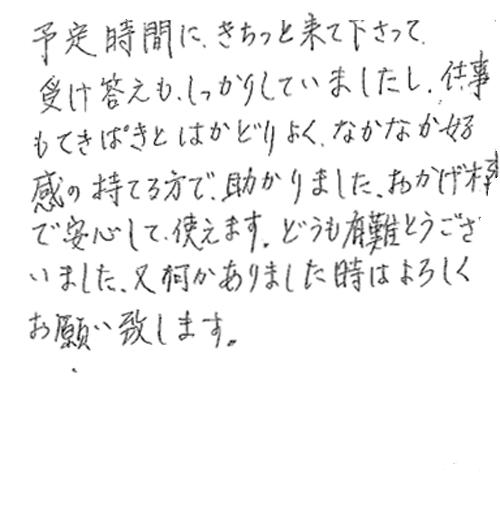 予定時間に、きちっと来て下さって、
受け答えも、しっかりしていましたし、仕事
もてきぱきとはかどりよく、なかなか好
感の持てる方で、助かりました、おかげ様
で安心して、使えます。どうも有難とうござ
いました、又何かありました時はよろしく
お願い致します。